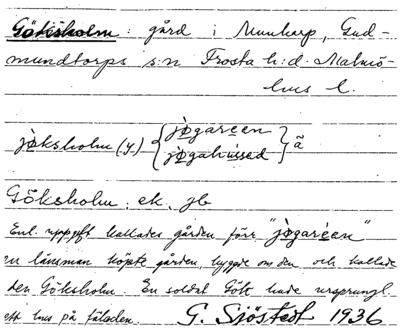 Göksholm: gård i Munkarp, Gud-
mundtorps s:n Frosta h:d. Malmö-
hus l.
jòksholm (y.) { jògarèen
jògahused } ā
Göksholm. ek. jb
Enl. uppgift kallades gården förr "jògarèen"
en länsman köpte gården, byggde om den och kallade
den Göksholm. En soldat Gök hade ursprungl.
ett hus på fäladen. G. Sjöstedt 1936